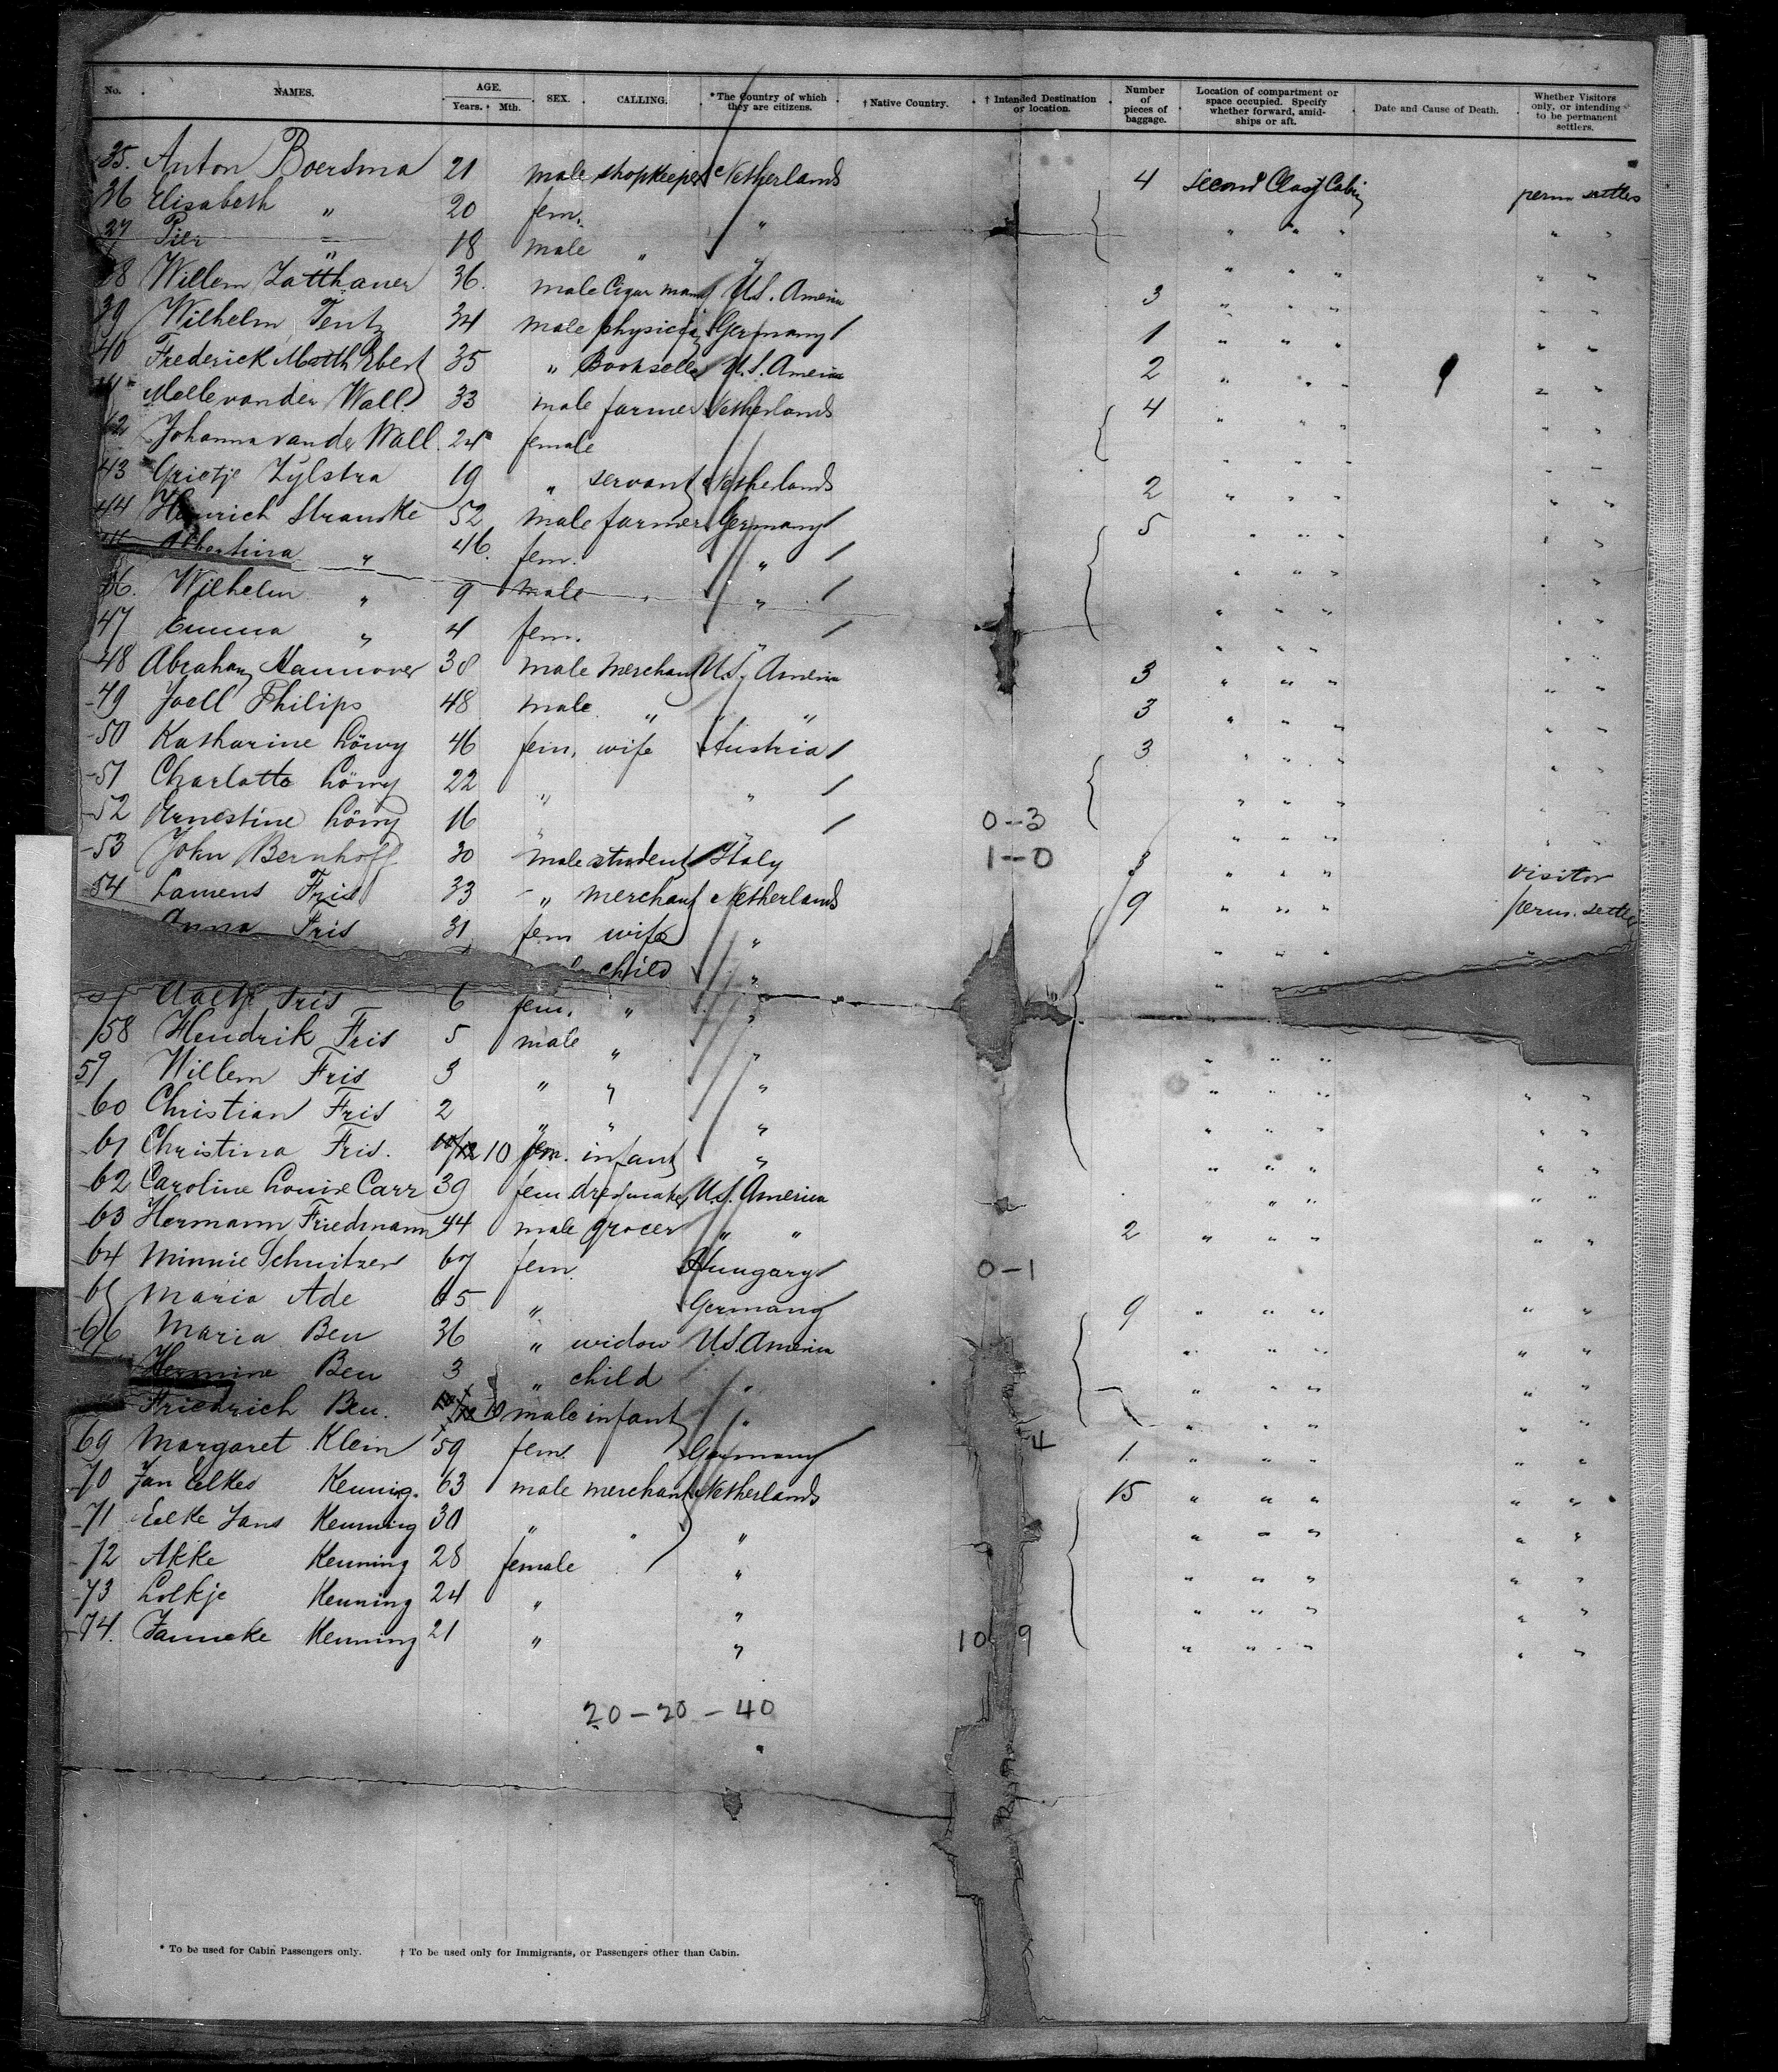 No. NAMES. AGE. Years. Mth. SEX. CALLING. *The Country of which they are citizens. † Native Country. † Intended Destination or location. Number of pieces of baggage. Location of compartment or space occupied. Specify whether forward, amid-ships or aft. Date and Cause of Death. Whether Visitors only, or intending to be permanent settlers.
35. Anton Boersma 21 male shopkeeper Netherlands 4 Second Class Cabin perm settlers
36 Elisabeth " 20 fem. " " " " " "
37 Pier " 18 male " " " " " " "
38 Willem 36. male Cigar U.S. America 3 " " " " "
39 Wilhelm Tentz 34 male physician Germany 1 " " " " "
40 Frederick Matth Ebert 35 " Bookseller U.S. America 2 " " " " "
Melle van der Wall 33 male farmer Netherlands 4 " " " " "
42 Johanna van der Wall. 24 female " " " " "
43 Grietje Zylstra 19 " servant Netherlands 2 " " " " "
44 Heinrich Stramke 52 male farmer Germany 5 " " " " "
45 Albertina " 46. fem. " " " " "
46. Wilhelm " 9 male " " " " " " "
47 Emma " 4 fem. " " " " " "
48 Abraham Hannover 38 male Merchant U.S. America 3 " " " " "
49 Joell Philips 48 male " " " 3 " " " " "
50 Katharine Löwy 46 fem. wife Austria 3 " " " " "
51 Charlotte Löwy 22 " " " " " " "
52 Ernestine Löwy 16 " " 0-3 " " " " "
53 John Bernhoff 30 male student Italy 1-0 " " " visitor
54 Lamens Fris 33 " merchant Netherlands 9 " " " perm. settlers
Anna Fris 31 fem wife " " " " "
child " "
Aaltje Fris 6 fem. " "
58 Hendrik Fris 5 male " " " " "
59 Willem Fris 3 " " " " " " " "
60 Christian Fris 2 " " " " " " " "
61 Christina Fris. 10/12 10 fem. infant " " " " " "
62 Caroline Louise Carr 39 fem dressmaker U.S. America " " " " "
63 Hermann Friedmann 44 male grocer " " 2 " " " " "
64 Minnie Schnitzer 67 fem. Hungary 0-1
65 Maria Ade 65 " Germany 9 " " " " "
66 Maria Beu 36 " widow U.S. America " " " " "
Hermine Beu 3 " child " " " " " "
Friedrich Beu. 10/12 10 male infant " " " " " "
69 Margaret Klein 59 fem. Germany 4 1 " " " " "
70 Jan Eelkes Keuning. 63 male merchant Netherlands 15 " " " " "
71 Eelke Jans Keuning 30 " " " " " " " "
72 Akke Keuning 28 female " " " " " "
73 Lolkje Keuning 24 " " " " " " "
74. Janneke Keuning 21 " " 10 9 " " " " "
20-20-40
* To be used for Cabin Passengers only. † To be used only for Immigrants, or Passengers other than Cabin.